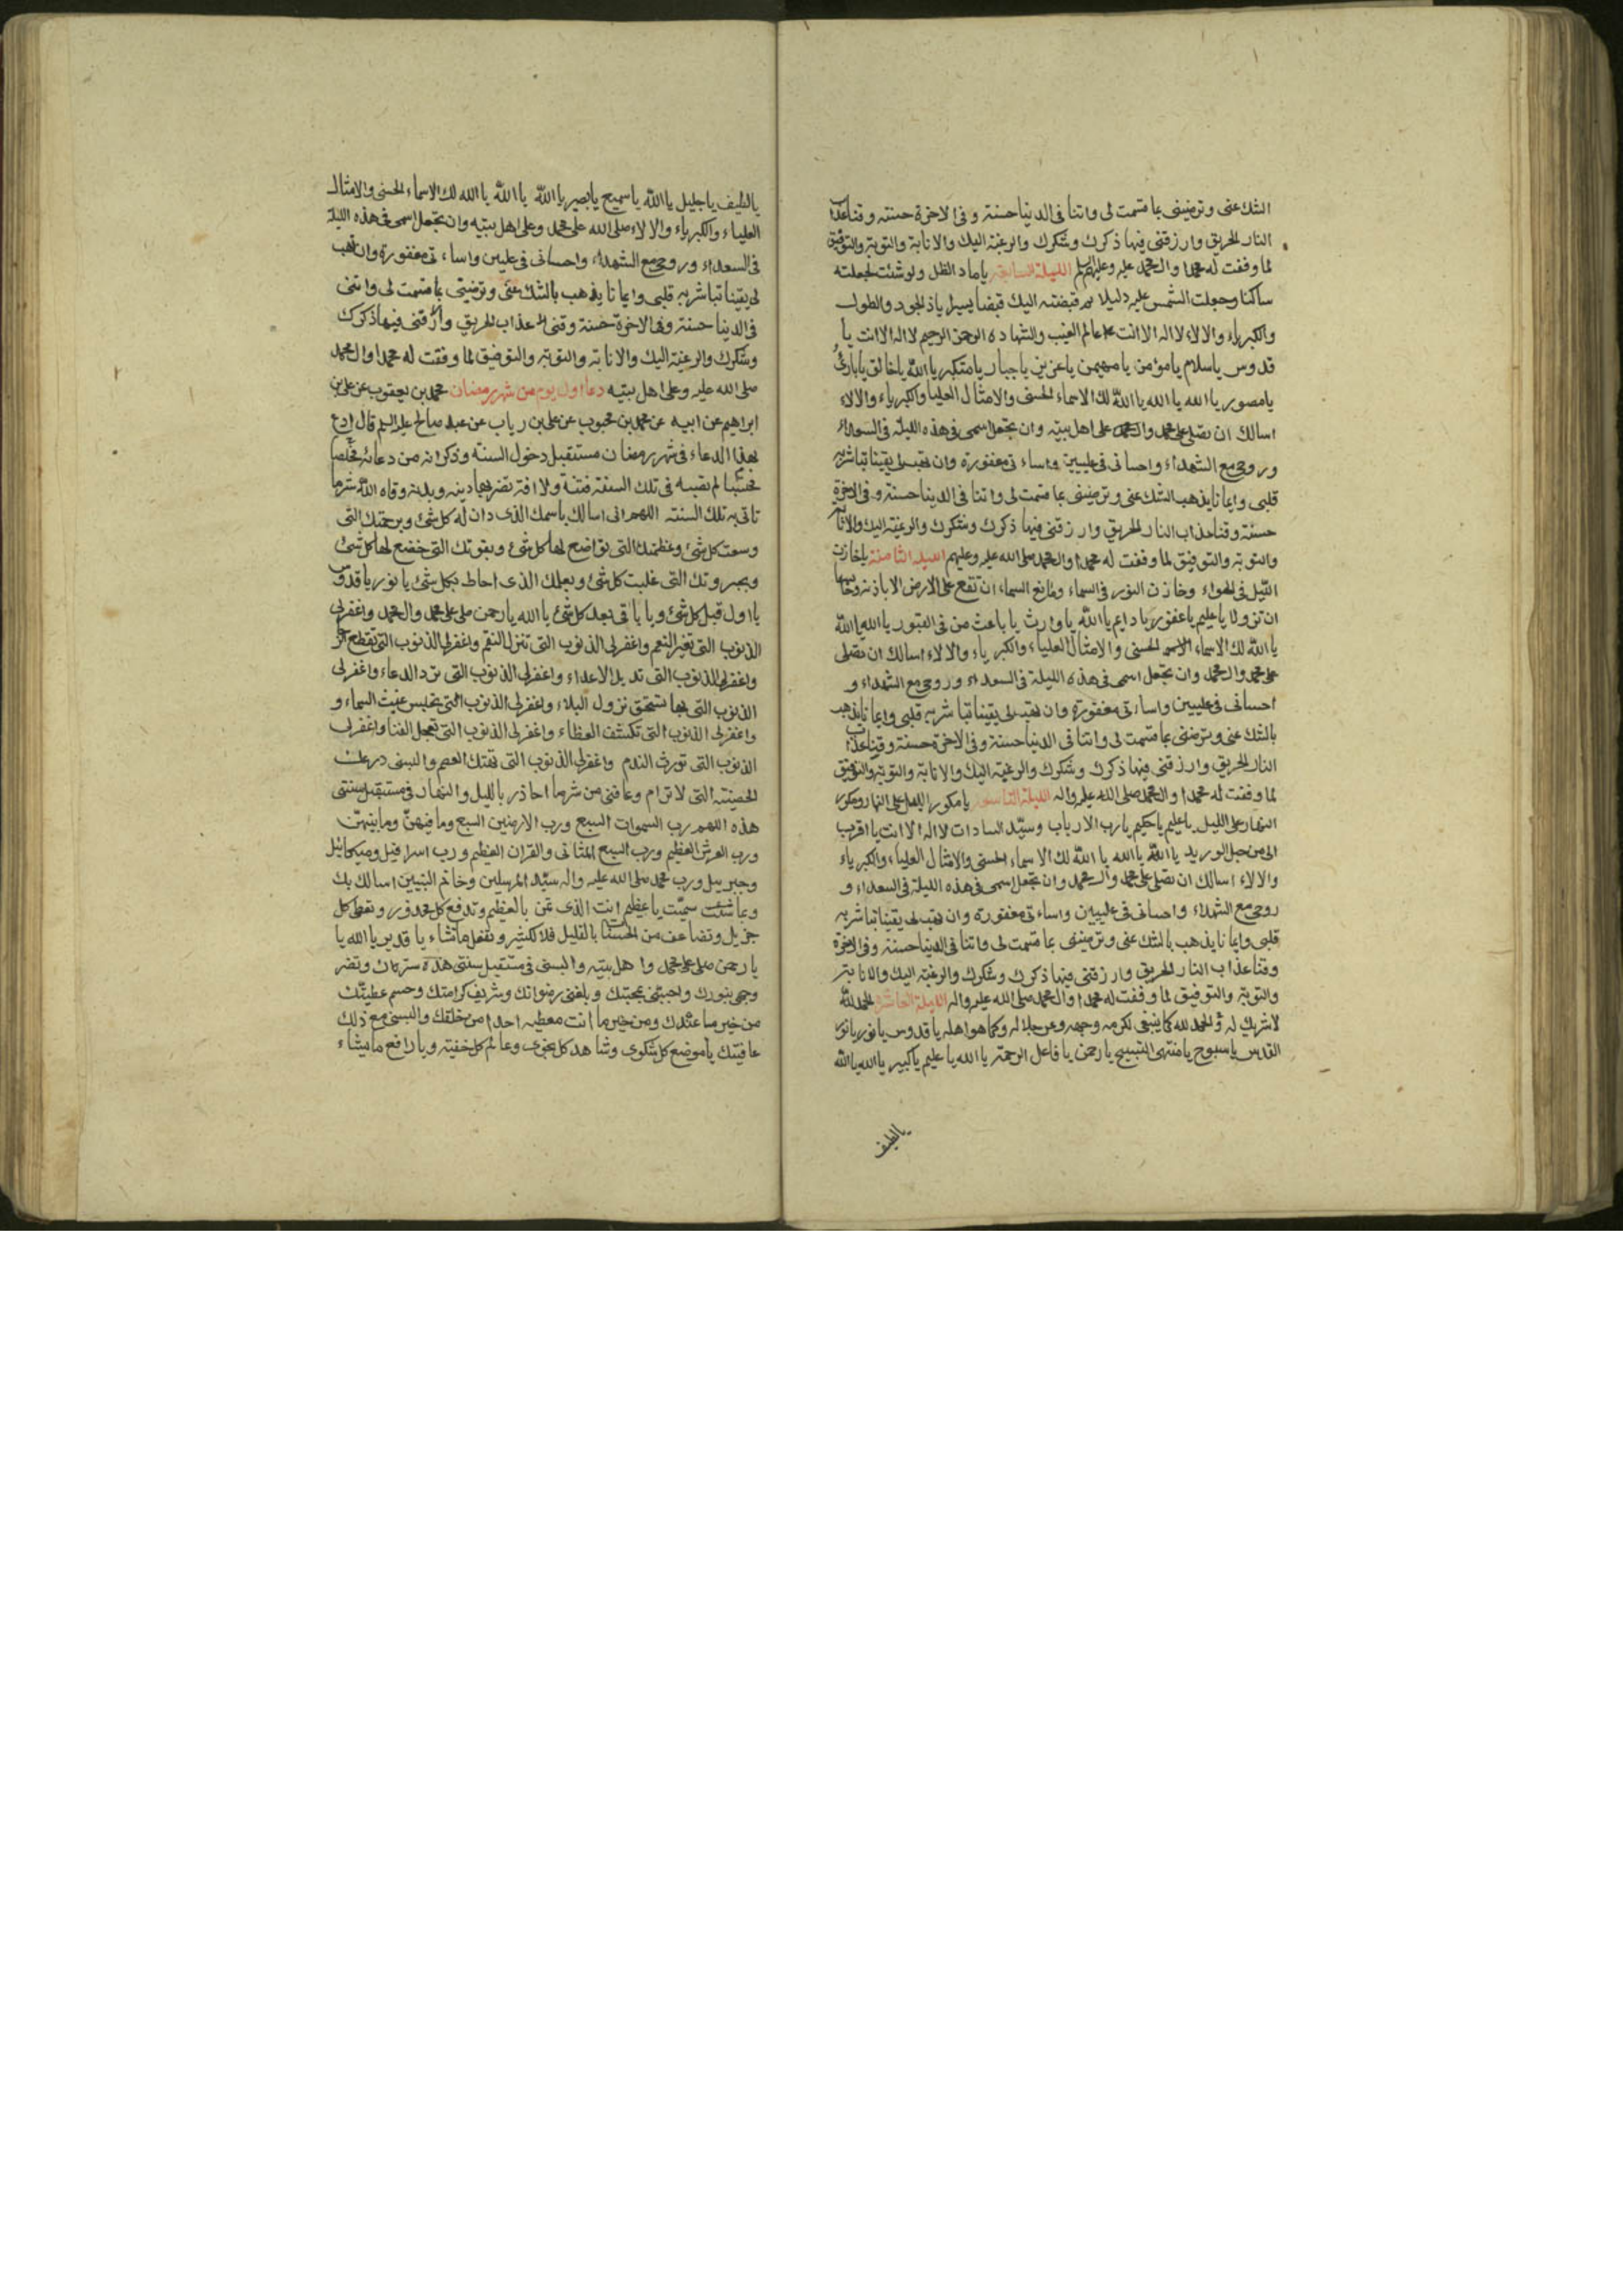 الشك عنى وترضينى بما قسمت لى واتنا فى الدنيا حسنة وفى الاخرة حسنة وقنا عذاب
النار الحريق وارزقنى فيها ذكرك وشكرك والرغبة اليك والانابة والتوبة والتوفيق
لما وفقت له محمدا وال محمد عليه وعليهم السلم الليلة السابعة يا ماد الظل ولو شئت لجعلته
ساكنا وجعلت الشمس عليه دليلا ثم قبضته اليك قبضا يسيرا يا ذا الجود والطول
والكبرياء والالاء لا اله الا انت عالم الغيب والشهادة الرحمن الرحيم لا اله الا انت يا
قدوس يا سلام يا مؤمن يا مهيمن يا عزيز يا جبار يا متكبر يا الله يا خالق يا بارئ
يا مصور يا الله يا الله يا الله لك الاسماء الحسنى والامثال العليا والكبرياء والالاء
اسالك ان تصلى على محمد وال محمد على اهل بيته وان تجعل اسمى فى هذه الليلة فى السعداء
وروحى مع الشهداء واحسانى فى عليين واساءتى مغفورة وان تهب لى يقينا تباشر به
قلبى وايمانا يذهب الشك عنى وترضينى بما قسمت لى واتنا فى الدنيا حسنة وفى الاخرة
حسنة وقنا عذاب النار الحريق وارزقنى فيها ذكرك وشكرك والرغبة اليك والانابة
والتوبة والتوفيق لما وفقت له محمدا وال محمد صلى الله عليه وعليهم الليلة الثامنة يا خازن
الليل فى الهواء وخازن النور فى السماء ومانع السماء ان تقع على الارض الا باذنه وحابسهما
ان تزولا يا عليم يا غفور يا دايم يا الله يا وارث يا باعث من فى القبور يا الله يا الله
يا الله لك الاسماء الاسم الحسنى والامثال العلياء والكبرياء والالاء اسالك ان تصلى
على محمد وال محمد وان تجعل اسمى فى هذه الليلة فى السعداء وروحى مع الشهداء و
احسانى فى عليين واساءتى مغفورة وان تهب لى يقينا تباشر به قلبى وايمانا يذهب
بالشك عنى وترضنى بما قسمت لى واتنا فى الدنيا حسنة وفى الاخرة حسنة وقنا عذاب
النار الحريق وارزقنى فيها ذكرك وشكرك والرغبة اليك والانابة والتوبة والتوفيق
لما وفقت له محمدا وال محمد صلى الله عليه واله الليلة التاسعة يا مكور الليل على النهار ومكور
النهار على الليل يا عليم يا حكيم يا رب الارباب وسيد السادات لا اله الا انت يا اقرب
الى من حبل الوريد يا الله يا الله يا الله لك الاسماء الحسنى والامثال العلياء والكبرياء
والالاء اسالك ان تصلى على محمد وال محمد وان تجعل اسمى فى هذه الليلة فى السعداء و
روحى مع الشهداء واحسانى فى عليين واساءتى مغفورة وان تهب لى يقينا تباشر به
قلبى وايمانا يذهب بالشك عنى وترضينى بما قسمت لى واتنا فى الدنيا حسنة وفى الاخرة
وقنا عذاب النار الحريق وارزقنى فيها ذكرك وشكرك والرغبة اليك والانابة
والتوبة والتوفيق لما وفقت له محمدا وال محمد صلى الله عليه واله الليلة العاشرة الحمد لله
لا شريك له والحمد لله كما ينبغى لكرم وجهه وعز جلاله وكما هو اهله يا قدوس يا نور يا نور
القدس يا سبوح يا منتهى التسبيح يا رحمن يا فاعل الرحمة يا الله يا عليم يا كبير يا الله يا الله
يا لطيف
يا لطيف يا جليل يا الله يا سميع يا بصير يا الله يا الله يا الله لك الاسماء الحسنى والامثال
العلياء والكبرياء والالاء صلى الله على محمد وعلى اهل بيته وان تجعل اسمى فى هذه الليلة
فى السعداء وروحى مع الشهداء واحسانى فى عليين واساءتى مغفورة وان تهب
لى يقينا تباشر به قلبى وايمانا يذهب بالشك عنى وترضينى بما قسمت لى واتنى
فى الدنيا حسنة وفى الاخرة حسنة وقنى عذاب الحريق وارزقنى فيها ذكرك
وشكرك والرغبة اليك والانابة والتوبة والتوفيق لما وفقت له محمدا وال محمد
صلى الله عليه وعلى اهل بيته دعاء اول يوم من شهر رمضان محمد بن يعقوب عن على بن
ابراهيم عن ابيه عن محمد بن محبوب عن على بن رياب عن عبد صالح عليه السلم قال ادع
بهذا الدعاء فى شهر رمضان مستقبل دخول السنة وذكر انه من دعا به مخلصا
محتسبا لم تصبه فى تلك السنة فتنة ولا افة تضر بها دينه وبدنه ووقاه الله شر ما
تاتى به تلك السنة اللهم انى اسالك باسمك الذى دان له كل شئ وبرحمتك التى
وسعت كل شئ وعظمتك التى تواضع لها كل شئ وبقوتك التى خضع لها كل شئ
وبجبروتك التى غلبت كل شئ وبعلمك الذى احاط بكل شئ يا نور يا قدوس
يا اول قبل كل شئ ويا باقى بعد كل شئ يا الله يا رحمن صل على محمد وال محمد واغفر لى
الذنوب التى تغير النعم واغفر لى الذنوب التى تنزل النقم واغفر لى الذنوب التى تقطع الرجاء
واغفر لى الذنوب التى تديل الاعداء واغفر لى الذنوب التى ترد الدعاء واغفر لى
الذنوب التى بها تستحق نزول البلاء واغفر لى الذنوب التى تحبس غيث السماء و
واغفر لى الذنوب التى تكشف الغطاء واغفر لى الذنوب التى تعجل الفنا واغفر لى
الذنوب التى تورث الندم واغفر لى الذنوب التى تهتك العصم والبسنى درعك
الحصينة التى لا ترام وعافنى من شر ما احاذر بالليل والنهار فى مستقبل سنتى
هذه اللهم رب السموات السبع ورب الارضين السبع وما فيهن وما بينهن
ورب العرش العظيم ورب السبع المثانى والقران العظيم ورب اسرافيل وميكائيل
وجبرييل ورب محمد صلى الله عليه واله سيد المرسلين وخاتم النبيين اسالك بك
وبما سميت يا عظيم انت الذى تمن بالعظيم وتدفع كل محذور وتعطى كل
جزيل وتضاعف من الحسنات بالقليل والكثير وتفعل ما تشاء يا قدير يا الله يا
يا رحمن صل على محمد واهل بيته والبسنى فى مستقبل سنتى هذه سترك ونضر
وجهى بنورك واحبنى بمحبتك وبلغنى رضوانك وشريف كرامتك وجسم عطيتك
من خير ما عندك ومن خير ما انت معطيه احدا من خلقك والبسنى مع ذلك
عافيتك يا موضع كل شكوى وشاهد كل نجوى وعالم كل خفية ويا رافع ما يشاء